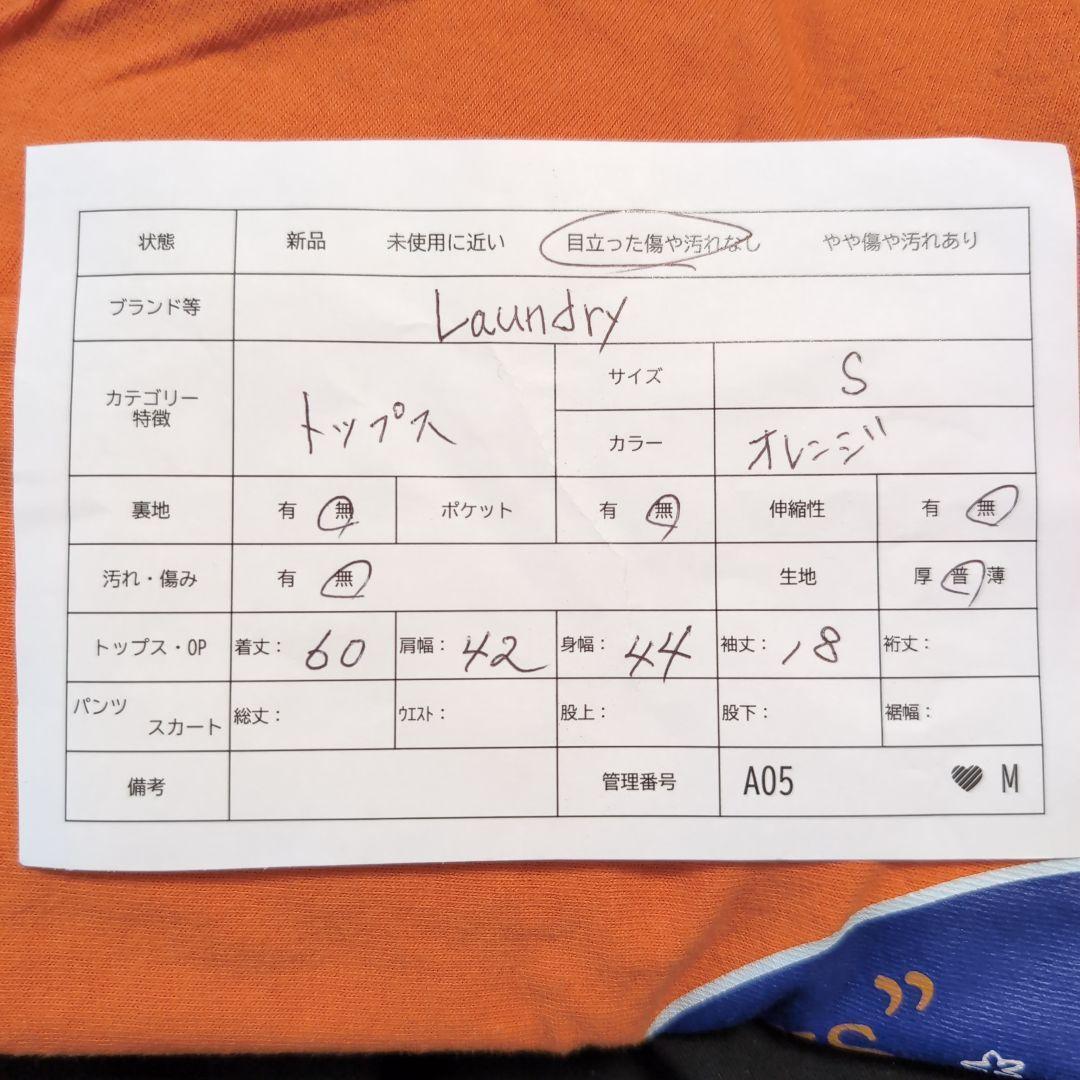 状態 新品 未使用に近い 目立った傷や汚れなし やや傷や汚れあり
ブランド等 Laundry
カテゴリー
特徴 トップス サイズ S
カラー オレンジ
裏地 有 無 ポケット 有 無 伸縮性 有 無
汚れ・傷み 有 無 生地 厚 普 薄
トップス・OP 着丈: 60 肩幅: 42 身幅: 44 袖丈: 18 裄丈:
パンツ
スカート 総丈: ウエスト: 股上: 股下: 裾幅:
備考 管理番号 A05 M